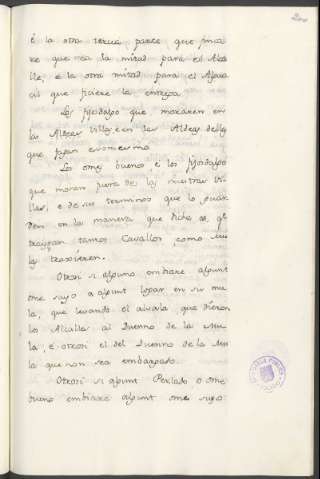 é la otra tercia parte que finca
re que sea la mitad para el Alca
lle, e la otra mitad para el Algua
cil que ficiere la entrega.
Los fijosdalgo que moraren en
las Villas, e en las Aldeas dellas
que fagan eso mesmo.
Los omes buenos é los fijosdalgo
que moran fuera de las nuestras Vi-
llas, e de sus terminos que lo guar
den en la manera que dicha es, que
traygan tantos Cavallos como
troxieren.
Otrosi si alguno embiare algunt
ome suyo a algunt logar en su mu
la, que levando el alvala, que dieron
los Alcalles al Duenno de la Mu
la, e otrosi el del Duenno de la Mu
la que non sea embargado.
Otrosi si algunt Perlado o ome
bueno embiare algunt ome suyo